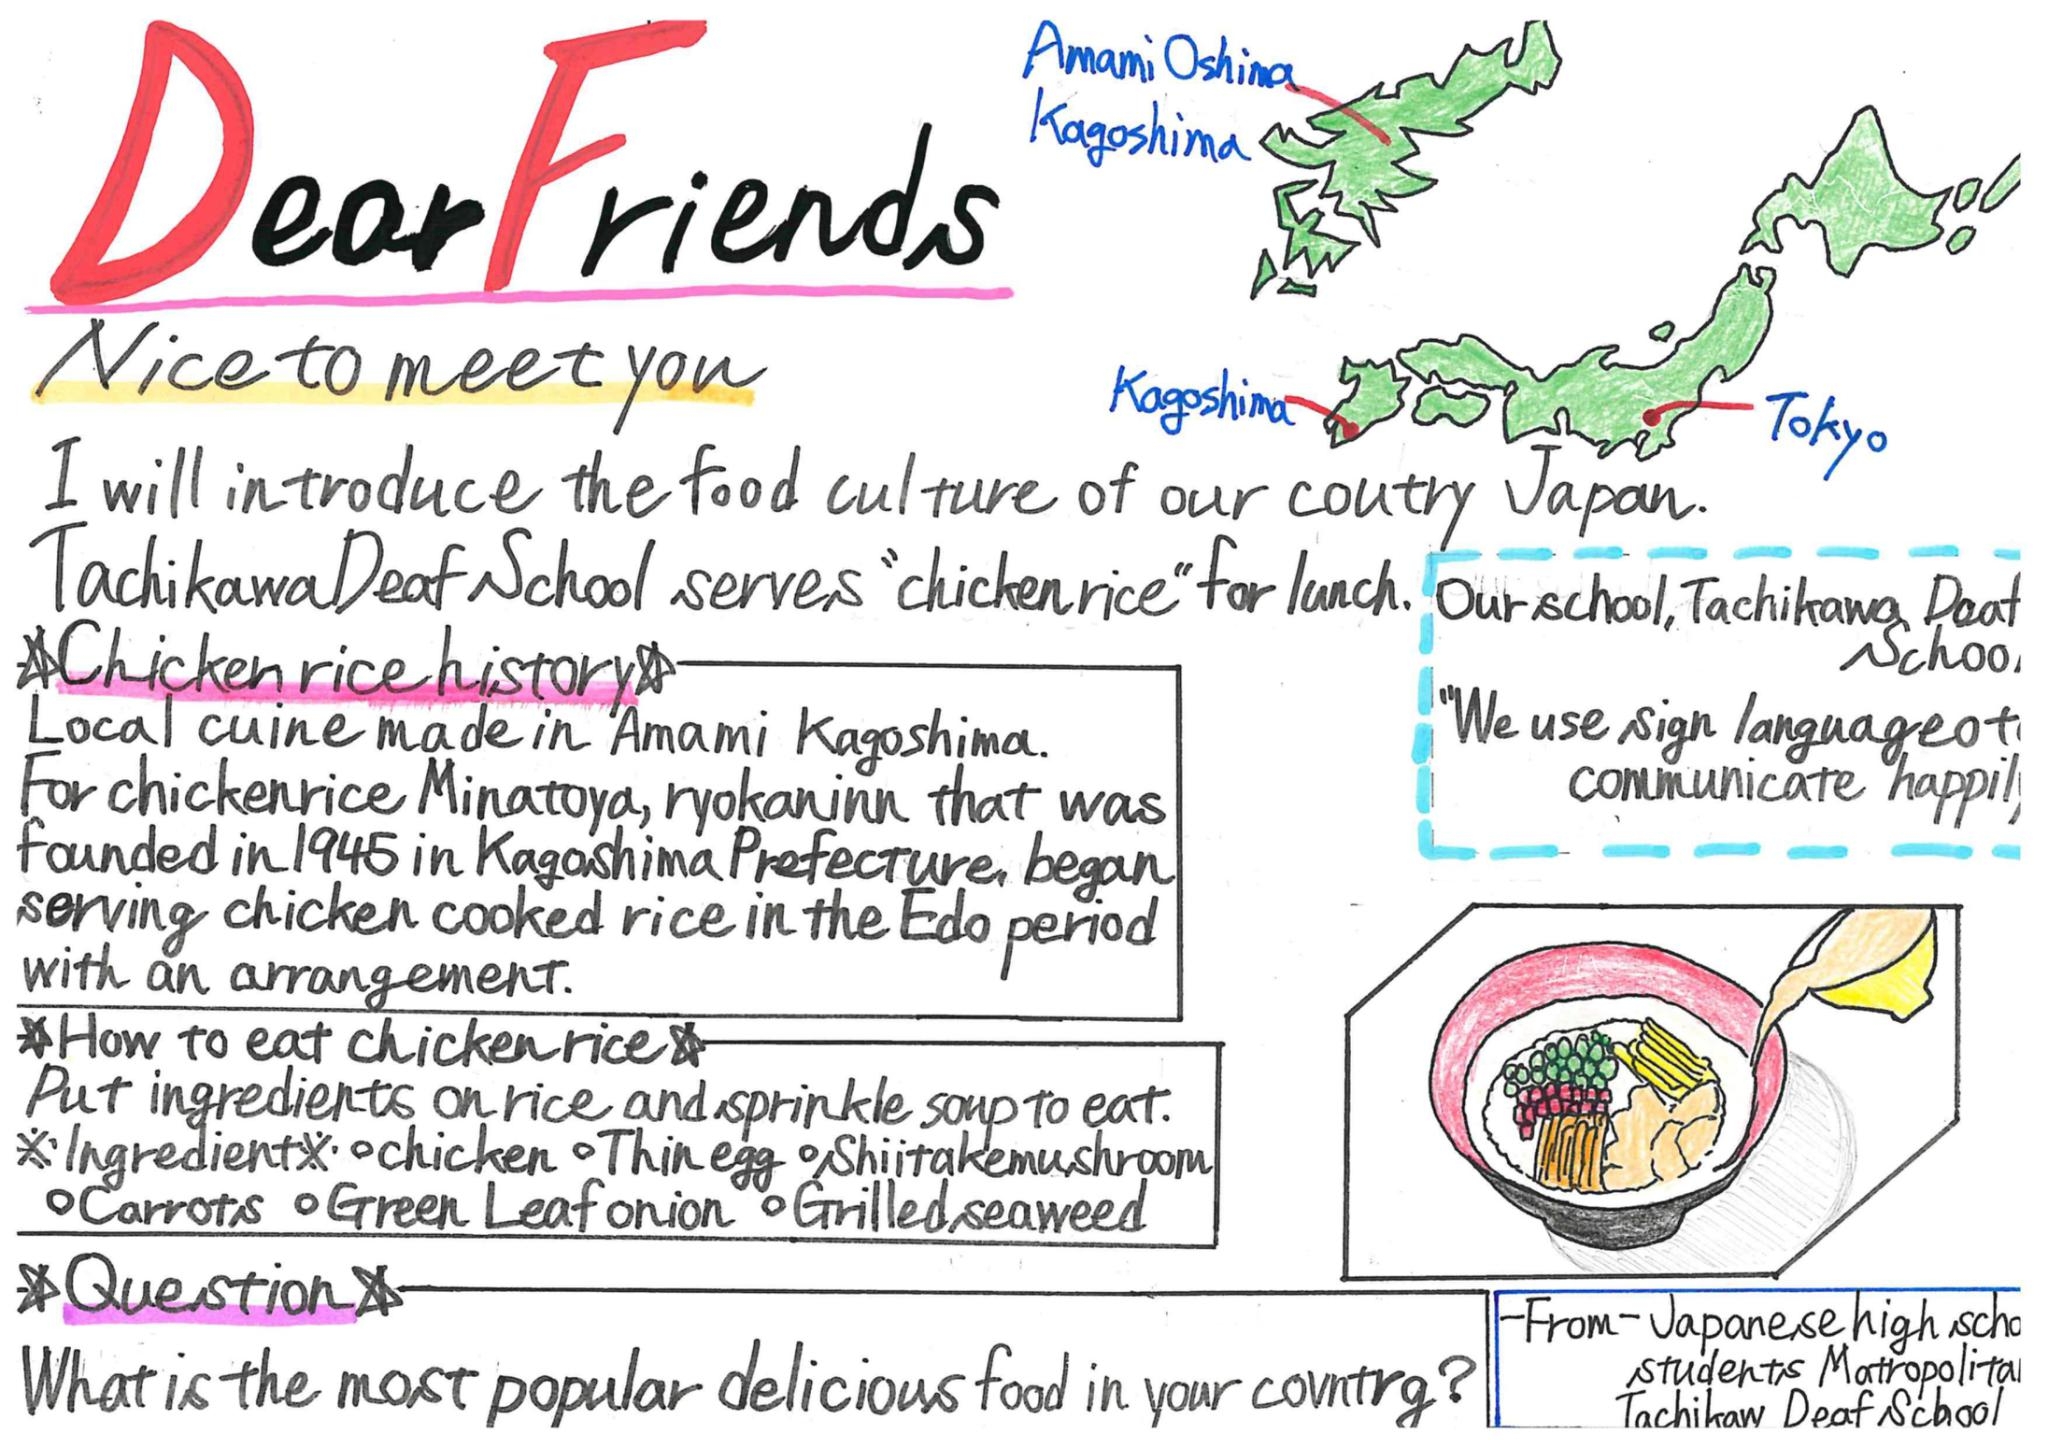 Dear Friends
Amami Oshima
Kagoshima
Nice to meet you
Kagoshima
Tokyo
I will introduce the food culture of our coutry Japan.
Tachikawa Deaf School serves "chicken rice" for lunch.
Our school, Tachikawa Deaf
School
"We use sign language to
communicate happily
☆Chicken rice history☆
Local cuine made in Amami Kagoshima.
For chickenrice Minatoya, ryokaninn that was
founded in 1945 in Kagoshima Prefecture, began
serving chicken cooked rice in the Edo period
with an arrangement.
☆How to eat chicken rice☆
Put ingredients on rice and sprinkle soup to eat.
※Ingredient※ ○chicken ○Thin egg ○Shiitakemushroom
○Carrots ○Green Leaf onion ○Grilled seaweed
☆Question☆
What is the most popular delicious food in your covntrg?
-From- Japanese high scho
students Matropolita
Tachikaw Deaf School